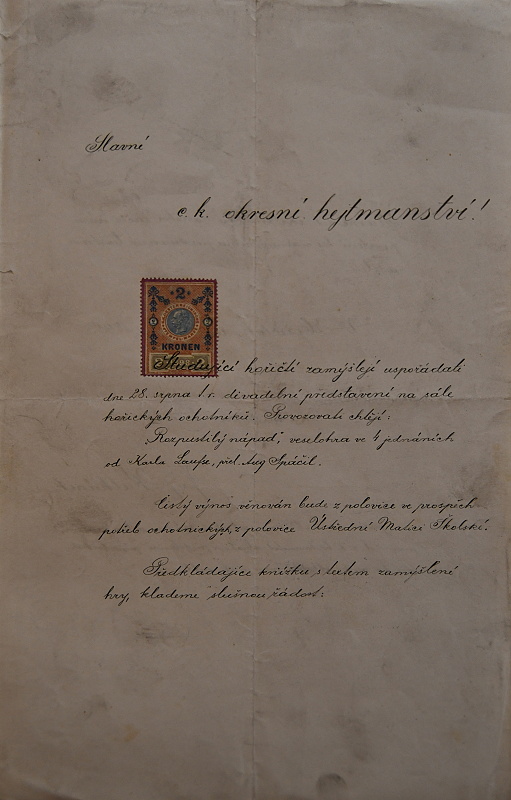 Slavné
c. k. okresní hejtmanství!
2
2 2
KRONEN
Studující hořičtí zamýšlejí uspořádati
dne 28. srpna t. r. divadelní představení na sále
hořických ochotníků. Provozovati chtějí:
"Rozpustilý nápad", veselohra ve 4 jednáních
od Karla Laufse, přel. Aug Spáčil.
Čistý výnos věnován bude z polovice ve prospěch
potřeb ochotnických, z polovice Ústřední Matici Školské.
Předkládajíce knížku s textem zamýšlené
hry, klademe slušnou žádost: